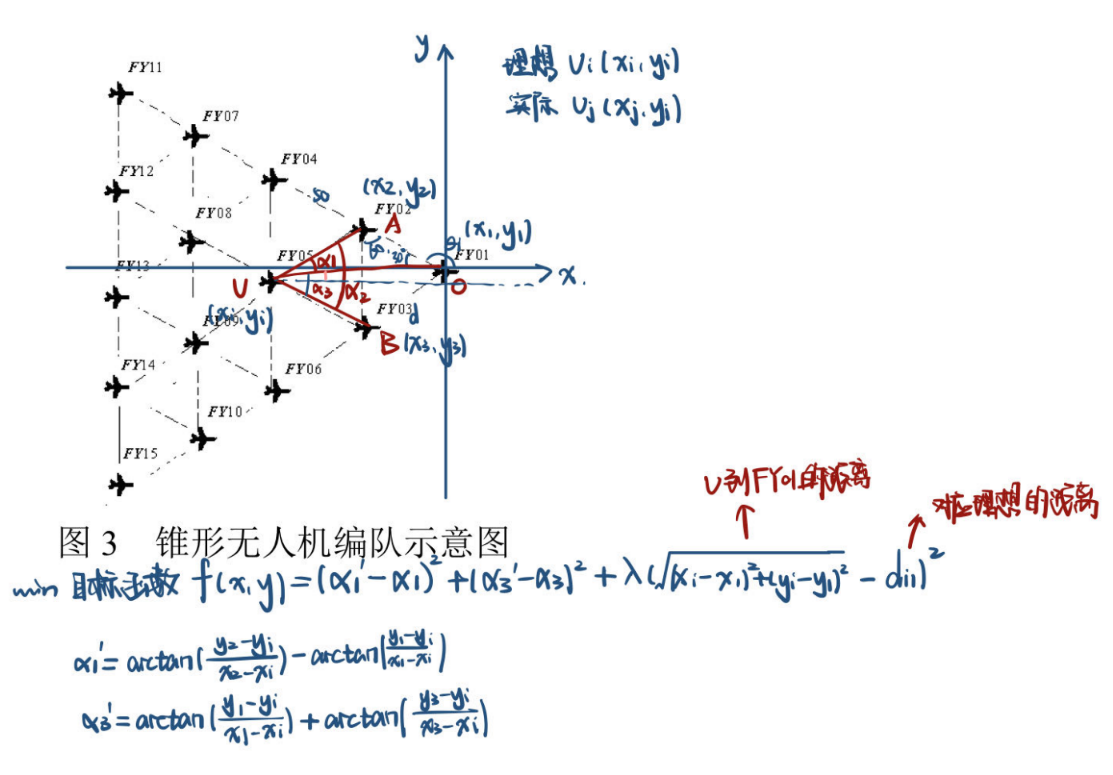 y
理想 Ui(xi, yi)
实际 Uj(xj, yj)
FY11
FY07
FY04
FY12
50
(x2, y2)
FY02
A
FY08
(x1, y1)
FY05
α1
30°
FY01
FY13
x
U
α3
α2
O
FY03
d
(xi, yi)
FY09
B (x3, y3)
FY14
FY06
FY10
FY15
U到FY01的距离
对应理想的距离
图 3 锥形无人机编队示意图
min 目标函数 f(x, y) = (α1' - α1)² + (α3' - α3)² + λ(√(xi - x1)² + (yi - y1)² - di1)²
α1' = arctan(y2 - yi / x2 - xi) - arctan(y1 - yi / x1 - xi)
α3' = arctan(y1 - yi / x1 - xi) + arctan(y3 - yi / x3 - xi)